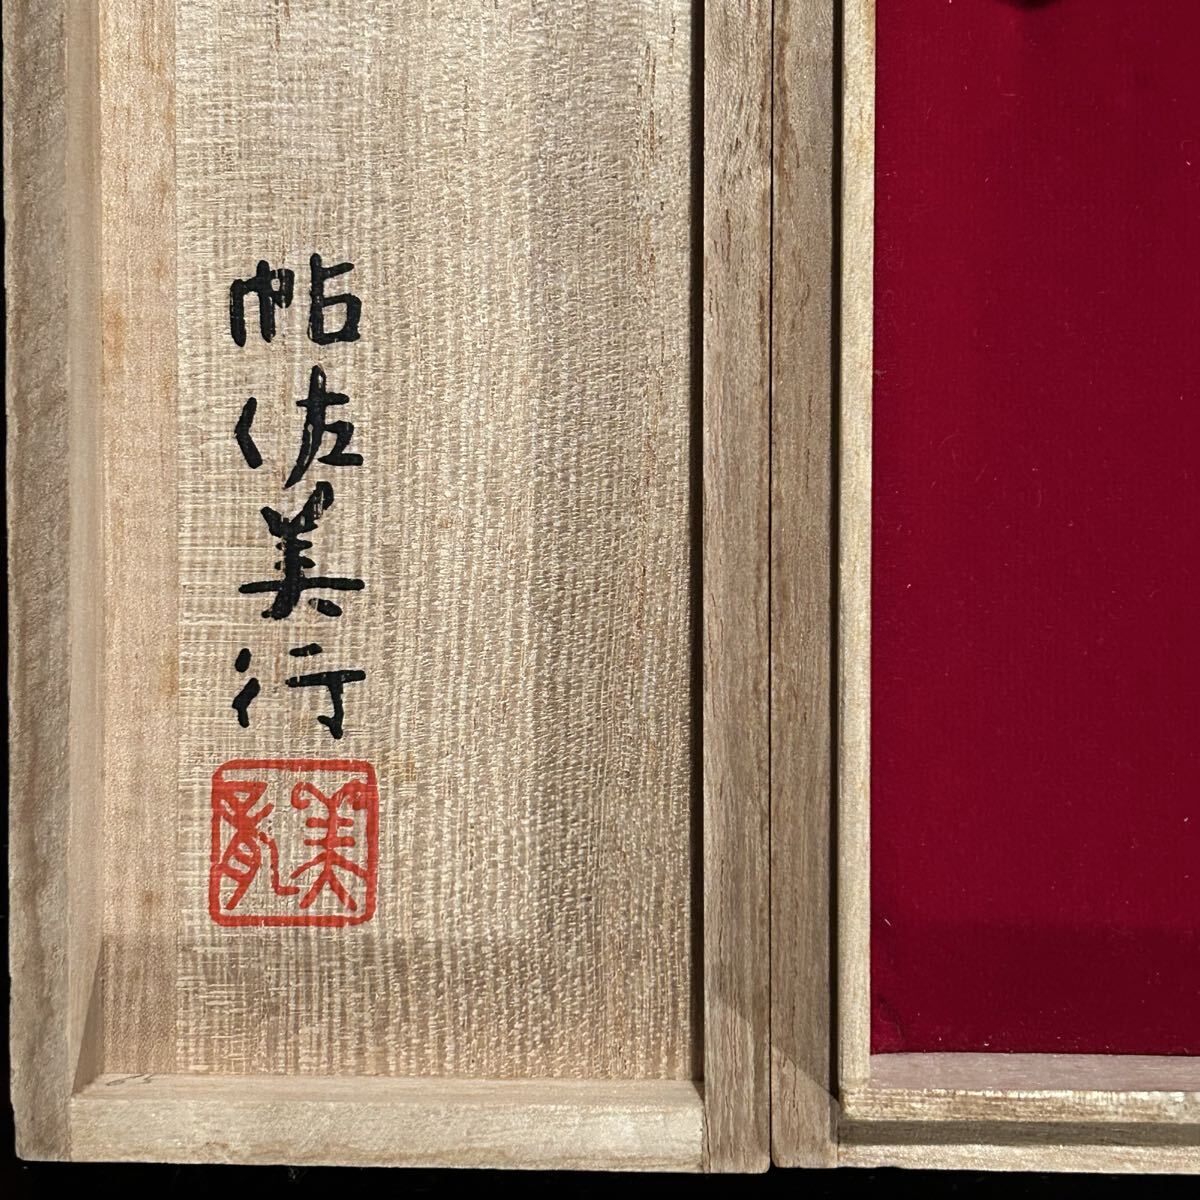 帖佐美行
美行